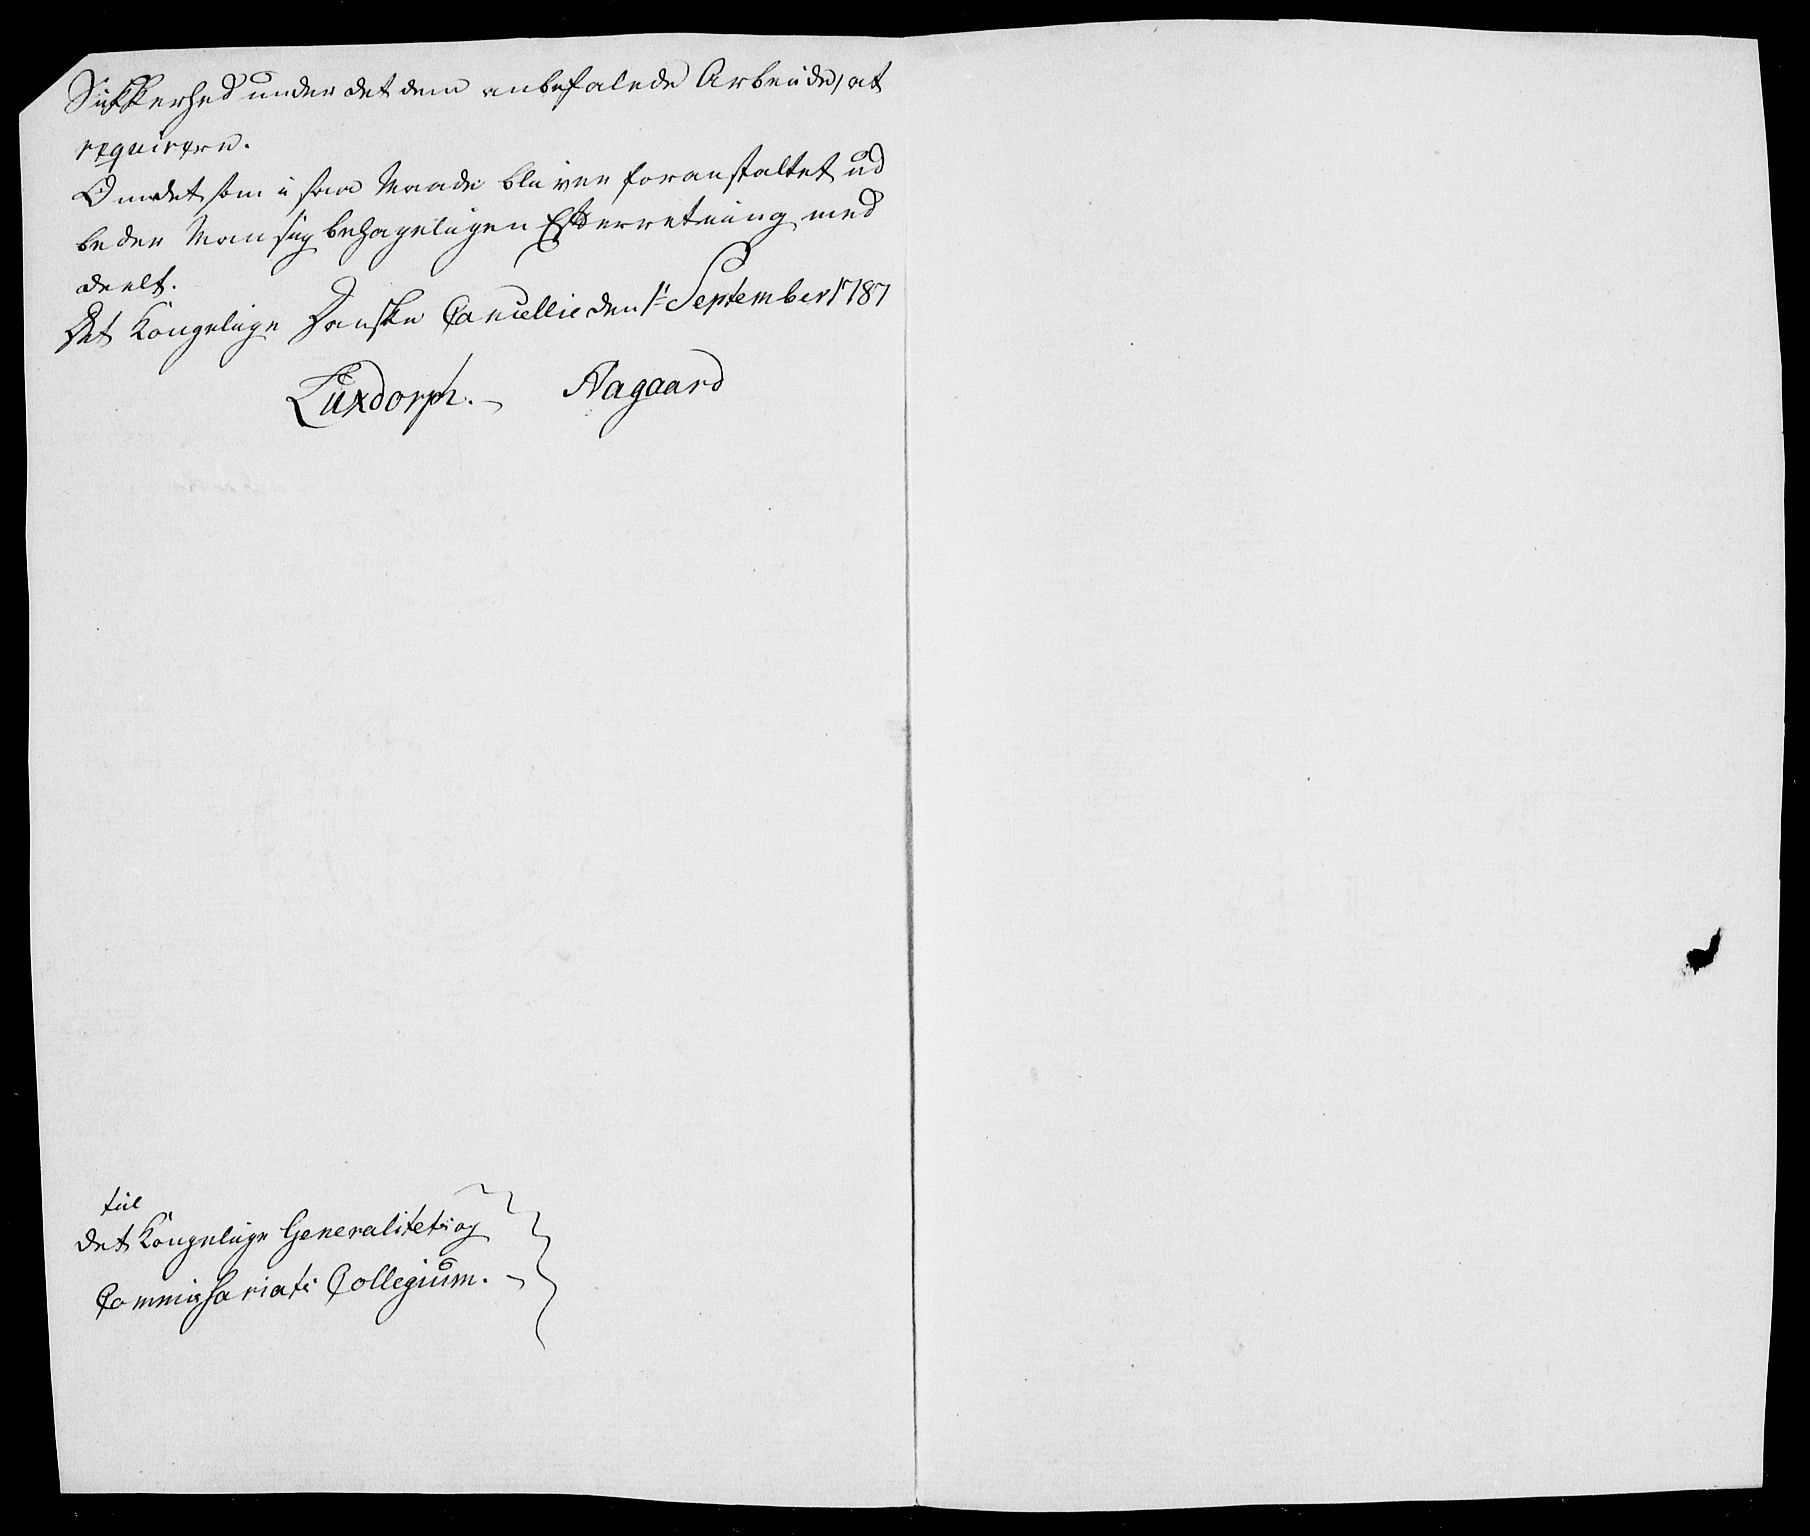 Sikkerhed under det dem anbefalede Arbeide, at
reqvirere.
Om det som i saa Maade bliver foranstaltet ud
beder Man sig behageligen Efterretning med
deelt.
Det Kongelige Danske Cancellie den 1te September 1787
Luxdorph. Aagaard
til
det Kongelige Generalitets og
Commissariats Collegium.